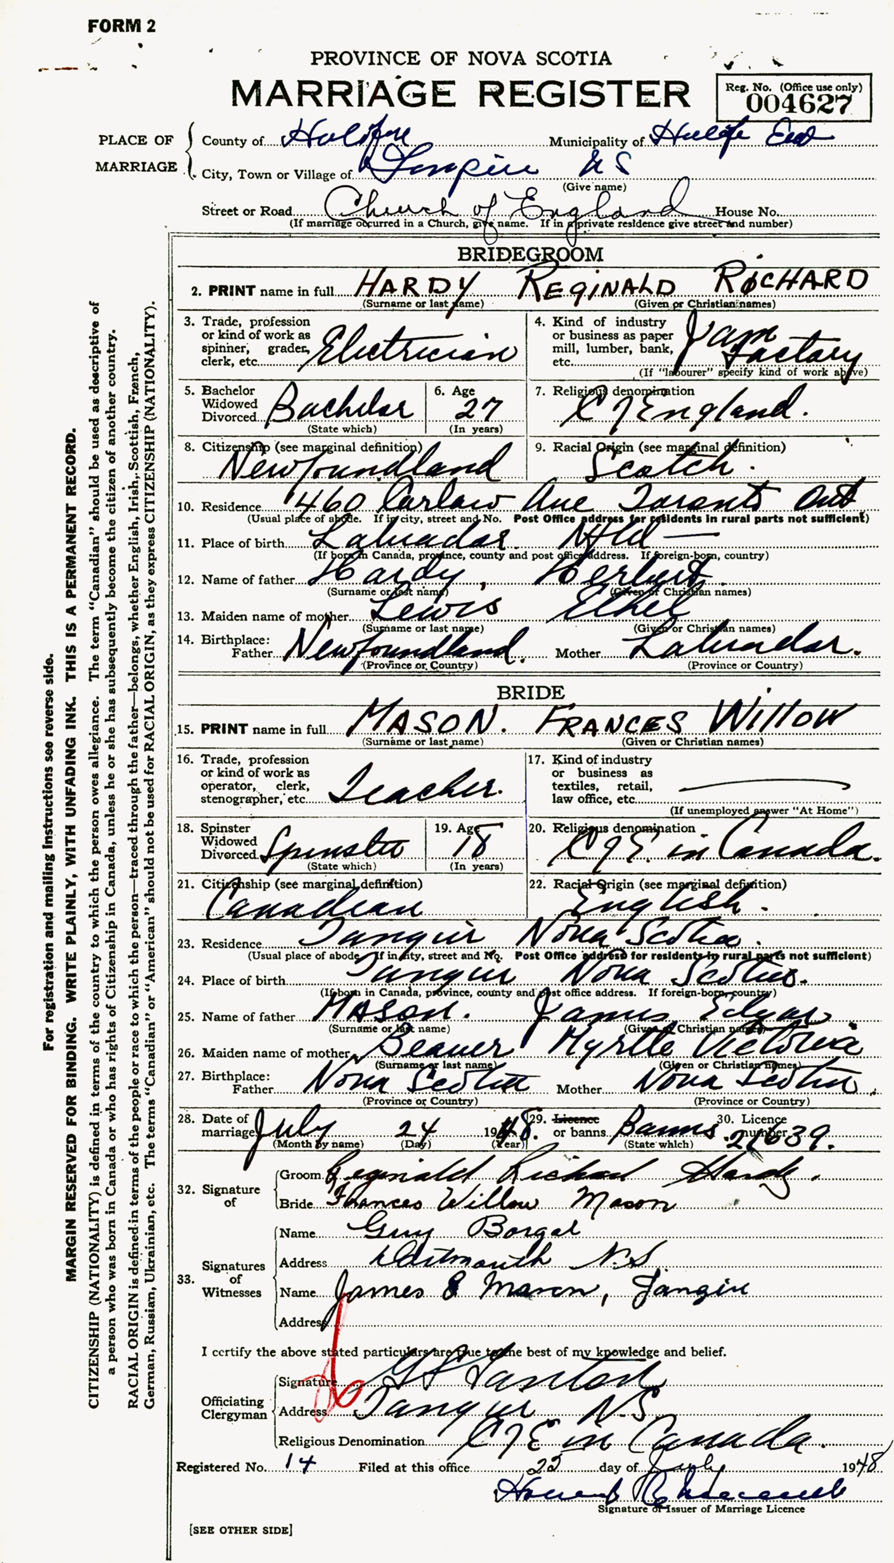 FORM 2
PROVINCE OF NOVA SCOTIA
MARRIAGE REGISTER
Reg. No. (Office use only)
004627
PLACE OF MARRIAGE
County of Halifax Municipality of Halifax East
City, Town or Village of Tangier N S
(Give name)
Street or Road Church of England House No.
(If marriage occurred in a Church, give name. If in a private residence give street and number)
BRIDEGROOM
2. PRINT name in full HARDY REGINALD RICHARD
(Surname or last name) (Given or Christian names)
3. Trade, profession or kind of work as spinner, grader, clerk, etc. Electrician
4. Kind of industry or business as paper mill, lumber, bank, etc. Jam Factory
(If "labourer" specify kind of work above)
5. Bachelor Widowed Divorced Bachelor
(State which)
6. Age 27
(In years)
7. Religious denomination C of England.
8. Citizenship (see marginal definition) Newfoundland
9. Racial Origin (see marginal definition) Scotch.
10. Residence 460 Carlaw Ave Toronto Ont
(Usual place of abode. If in city, street and No. Post Office address for residents in rural parts not sufficient)
11. Place of birth Labrador. Nfld —
(If born in Canada, province, county and post office address. If foreign-born, country)
12. Name of father Hardy, Herbert.
(Surname or last name) (Given or Christian names)
13. Maiden name of mother Lewis Ethel
(Surname or last name) (Given or Christian names)
14. Birthplace: Father Newfoundland. Mother Labrador.
(Province or Country) (Province or Country)
BRIDE
15. PRINT name in full MASON. FRANCES WILLOW
(Surname or last name) (Given or Christian names)
16. Trade, profession or kind of work as operator, clerk, stenographer, etc. Teacher.
17. Kind of industry or business as textiles, retail, law office, etc. —
(If unemployed answer "At Home")
18. Spinster Widowed Divorced Spinster
(State which)
19. Age 18
(In years)
20. Religious denomination C of E. in Canada.
21. Citizenship (see marginal definition) Canadian
22. Racial Origin (see marginal definition) English.
23. Residence Tangier Nova Scotia.
(Usual place of abode. If in city, street and No. Post Office address for residents in rural parts not sufficient)
24. Place of birth Tangier Nova Scotia.
(If born in Canada, province, county and post office address. If foreign-born, country)
25. Name of father Mason. James Edgar
(Surname or last name) (Given or Christian names)
26. Maiden name of mother Beaver Myrtle Victoria
(Surname or last name) (Given or Christian names)
27. Birthplace: Father Nova Scotia Mother Nova Scotia.
(Province or Country) (Province or Country)
28. Date of marriage July 24 1948.
(Month by name) (Day) (Year)
29. Licence or banns Banns.
(State which)
30. Licence number 21639.
32. Signature of
Groom Reginald Richard Hardy.
Bride Frances Willow Mason
33. Signatures of Witnesses
Name Guy Borgal
Address Dartmouth N.S.
Name James E Mason, Tangier
Address
I certify the above stated particulars are true to the best of my knowledge and belief.
Officiating Clergyman
Signature
Address Tangier N.S.
Religious Denomination C of E in Canada.
Registered No. 14 Filed at this office 25 day of July 1948
Signature of Issuer of Marriage Licence
[SEE OTHER SIDE]
For registration and mailing instructions see reverse side.
MARGIN RESERVED FOR BINDING. WRITE PLAINLY, WITH UNFADING INK. THIS IS A PERMANENT RECORD.
CITIZENSHIP (NATIONALITY) is defined in terms of the country to which the person owes allegiance. The term "Canadian" should be used as descriptive of
a person who was born in Canada or who has rights of Citizenship in Canada, unless he or she has subsequently become the citizen of another country.
RACIAL ORIGIN is defined in terms of the people or race to which the person—traced through the father—belongs, whether English, Irish, Scottish, French,
German, Russian, Ukrainian, etc. The terms "Canadian" or "American" should not be used for RACIAL ORIGIN, as they express CITIZENSHIP (NATIONALITY).